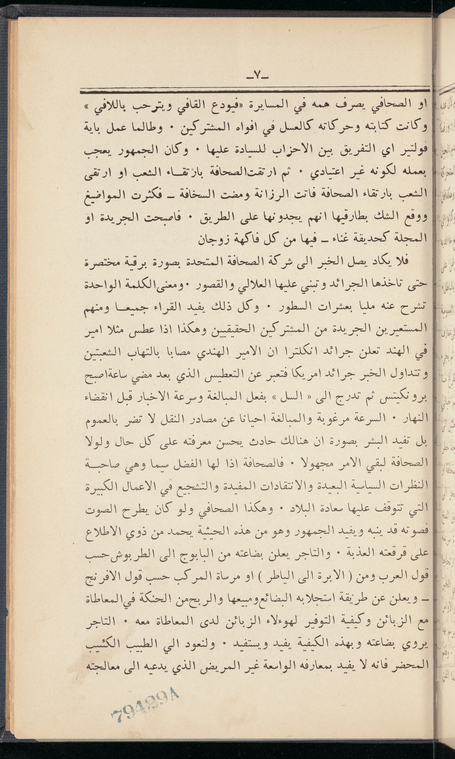 ـ٧ـ
او الصحافي يصرف همه في المسايرة «فيودع القافي ويترحب باللافي»
وكانت كتابته وحركاته كالعسل في افواه المشتركين ٠ وطالما عمل باية
فولتير اي التفريق بين الاحزاب للسيادة عليها ٠ وكان الجمهور يعجب
بعمله لكونه غير اعتيادي ٠ ثم ارتقت الصحافة بارتقاء الشعب او ارتقى
الشعب بارتقاء الصحافة فاتت الرزانة ومضت السخافة ــ فكثرت المواضيع
ووقع الشك بطارقيها انهم يجدونها على الطريق ٠ فاصبحت الجريدة او
المجلة كحديقة غناء ــ فيها من كل فاكهة زوجان
فلا يكاد يصل الخبر الى شركة الصحافة المتحدة بصورة برقية مختصرة
حتى تاخذها الجرائد وتبني عليها العلالي والقصور ٠ ومعنى الكلمة الواحدة
تشرح عنه مليا بعشرات السطور ٠ وكل ذلك يفيد القراء جميعا ومنهم
المستعيرين الجريدة من المشتركين الحقيقيين وهكذا اذا عطس مثلا امير
في الهند تعلن جرائد انكلترا ان الامير الهندي مصابا بالتهاب الشعبتين
وتتداول الخبر جرائد امريكا فتعبر عن التعطيس الذي بعد مضي ساعة اصبح
برونكيتس ثم تدرج الى «السل» بفعل المبالغة وسرعة الاخبار قبل انقضاء
النهار ٠ السرعة مرغوبة والمبالغة احيانا عن مصادر النقل لا تضر بالعموم
بل تفيد البشر بصورة ان هنالك حادث يحسن معرفته على كل حال ولولا
الصحافة لبقي الامر مجهولا ٠ فالصحافة اذا لها الفضل سيما وهي صاحبة
النظرات السياسية البعيدة والانتقادات المفيدة والتشجيع في الاعمال الكبيرة
التي تتوقف عليها سعادة البلاد ٠ وهكذا الصحافي ولو كان يطرح الصوت
فصوته قد ينبه ويفيد الجمهور وهو من هذه الحيثية يحمد من ذوي الاطلاع
على قرقعته العذبة ٠ والتاجر يعلن بضاعته من البابوج الى الطربوش حسب
قول العرب ومن (الابرة الى الباطر) او مرساة المركب حسب قول الافرنج
ــ ويعلن عن طريقة استجلابه البضائع ومبيعها والربح من الحنكة في المعاطاة
مع الزبائن وكيفية التوفير لهوءلاء الزبائن لدى المعاطاة معه ٠ التاجر
يروي بضاعته وبهذه الكيفية يفيد ويستفيد ٠ ولنعود الى الطبيب الكئيب
المحضر فانه لا يفيد بمعارفه الواسعة غير المريض الذي يدعيه الى معالجته
79429A